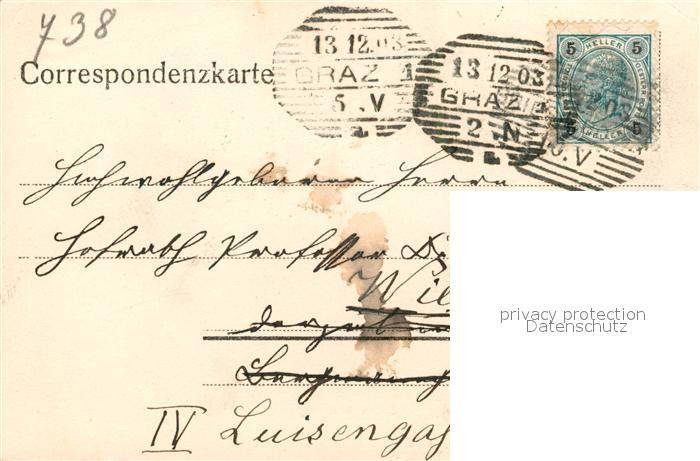 738
13 12.03
GRAZ 1
5.V
13 12 03
GRAZ
2.N
5 HELLER 5
5 HELLER 5
10.V
Correspondenzkarte
Hochwohlgeboren Herrn
Hofrath Professor D
Wie
derzeit
IV Luisengas
privacy protection
Datenschutz